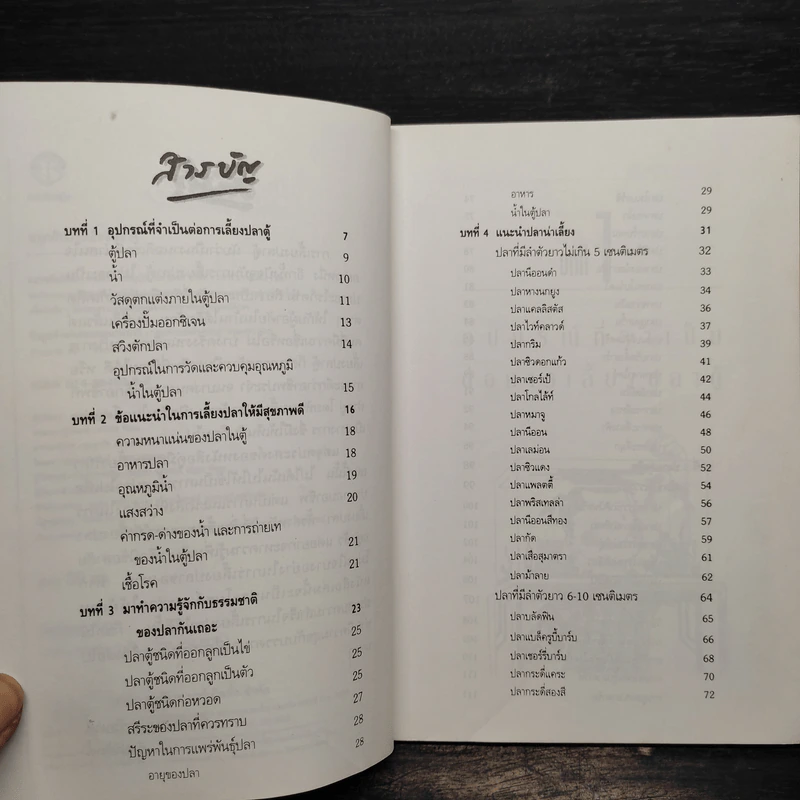 สารบัญ
บทที่ 1 อุปกรณ์ที่จำเป็นต่อการเลี้ยงปลาตู้ 7
ตู้ปลา 9
น้ำ 10
วัสดุตกแต่งภายในตู้ปลา 11
เครื่องปั๊มออกซิเจน 13
สวิงตักปลา 14
อุปกรณ์ในการวัดและควบคุมอุณหภูมิ
น้ำในตู้ปลา 15
บทที่ 2 ข้อแนะนำในการเลี้ยงปลาให้มีสุขภาพดี 16
ความหนาแน่นของปลาในตู้ 18
อาหารปลา 18
อุณหภูมิน้ำ 19
แสงสว่าง 20
ค่ากรด-ด่างของน้ำ และการถ่ายเท
ของน้ำในตู้ปลา 21
เชื้อโรค 21
บทที่ 3 มาทำความรู้จักกับธรรมชาติ
ของปลากันเถอะ 23
ปลาตู้ชนิดที่ออกลูกเป็นไข่ 25
ปลาตู้ชนิดที่ออกลูกเป็นตัว 25
ปลาตู้ชนิดก่อหวอด 25
สรีระของปลาที่ควรทราบ 27
ปัญหาในการแพร่พันธุ์ปลา 28
อายุของปลา 28
อาหาร 29
น้ำในตู้ปลา 29
บทที่ 4 แนะนำปลาน่าเลี้ยง 31
ปลาที่มีลำตัวยาวไม่เกิน 5 เซนติเมตร 32
ปลานีออนดำ 33
ปลาหางนกยูง 34
ปลาแคลลิสตัส 36
ปลาไวท์คลาวด์ 37
ปลากริม 39
ปลาซิวคอกแก้ว 41
ปลาเซอร์เป้ 42
ปลาโกลไล้ท์ 44
ปลาหมาจู 46
ปลานีออน 48
ปลาเลม่อน 50
ปลาซิวแดง 52
ปลาแพลตตี้ 54
ปลาพริสเทลล่า 56
ปลานีออนสีทอง 57
ปลากัด 59
ปลาเสือสุมาตรา 61
ปลาม้าลาย 62
ปลาที่มีลำตัวยาว 6-10 เซนติเมตร 64
ปลาบลัดฟิน 65
ปลาแบล็ครูบี้บาร์บ 66
ปลาเชอร์รี่บาร์บ 68
ปลากระดี่แคระ 70
ปลากระดี่สองสี 72